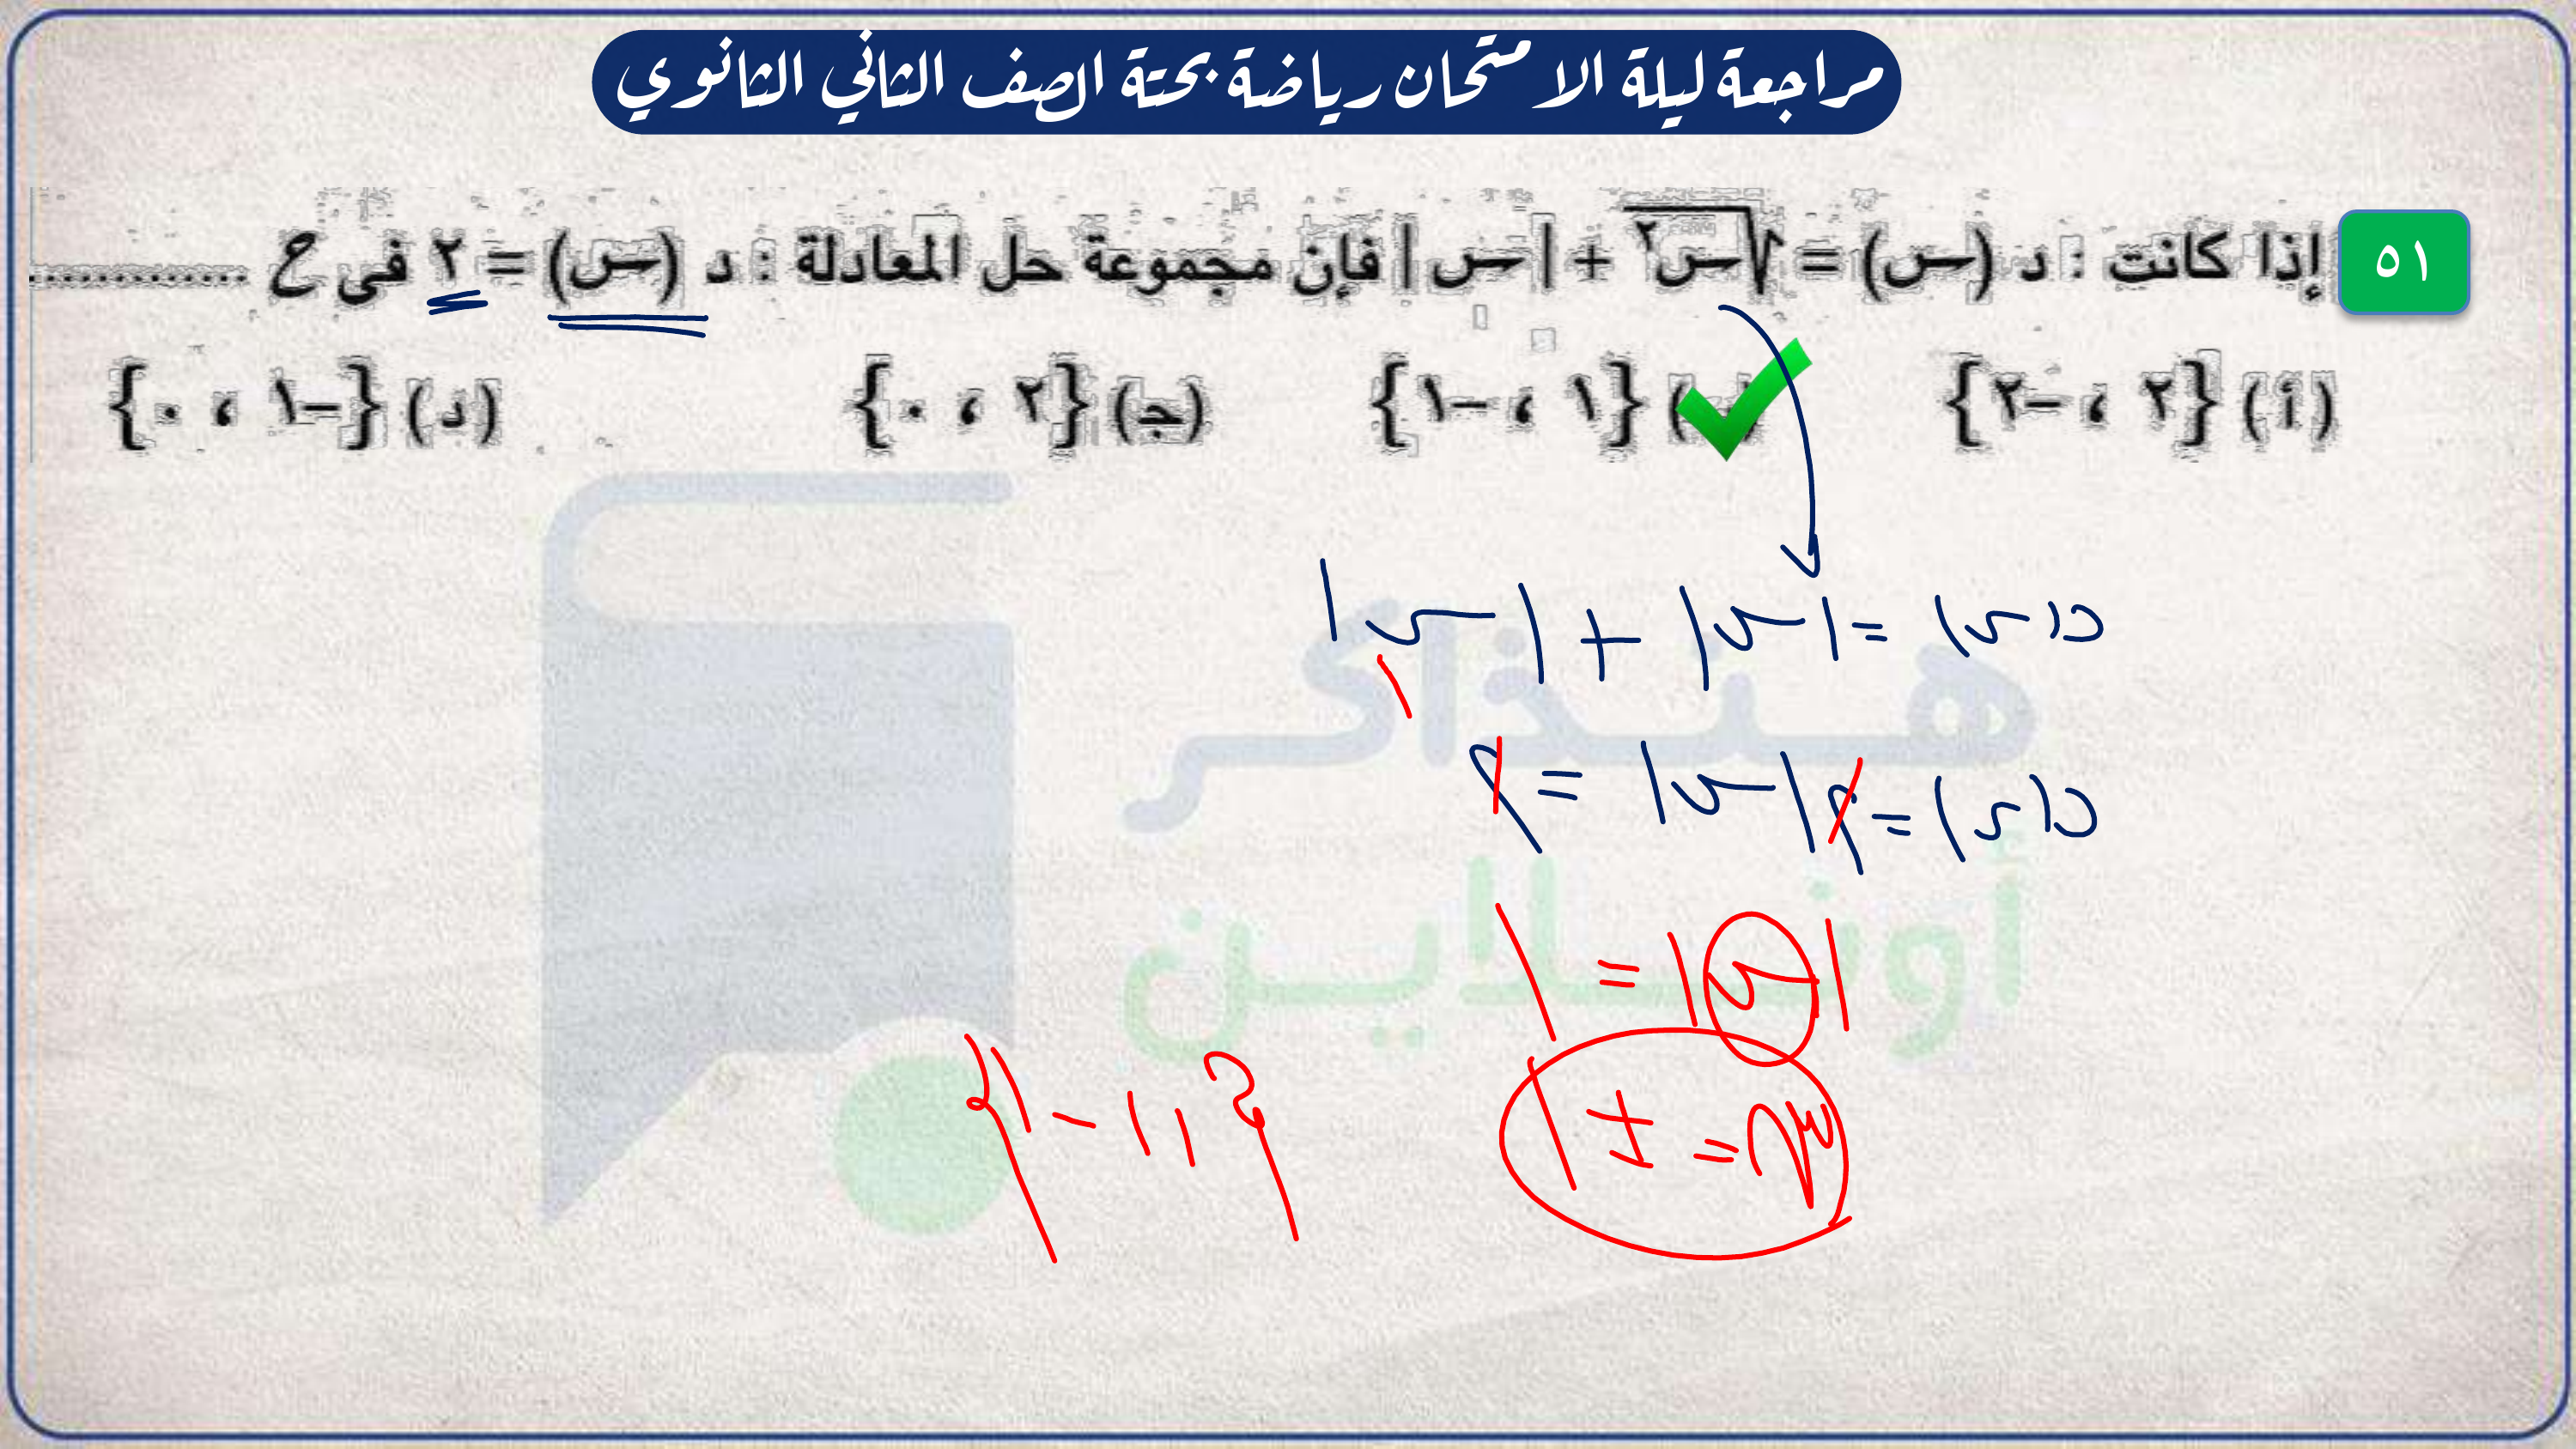 مراجعة ليلة الامتحان رياضة بحتة الصف الثاني الثانوي
٥١ إذا كانت : د (س) = √س٢ + |س| فإن مجموعة حل المعادلة : د (س) = ٢ فى ع ............
(أ) {٢ ، -٢} (ب) {١ ، -١} (ج) {٢ ، ٠} (د) {-١ ، ٠}
د(س) = |س| + |س|
د(س) = ٢|س| = ٢
|س| = ١
س = ± ١
{١ ، -١}
هنذاكر
أونلاين